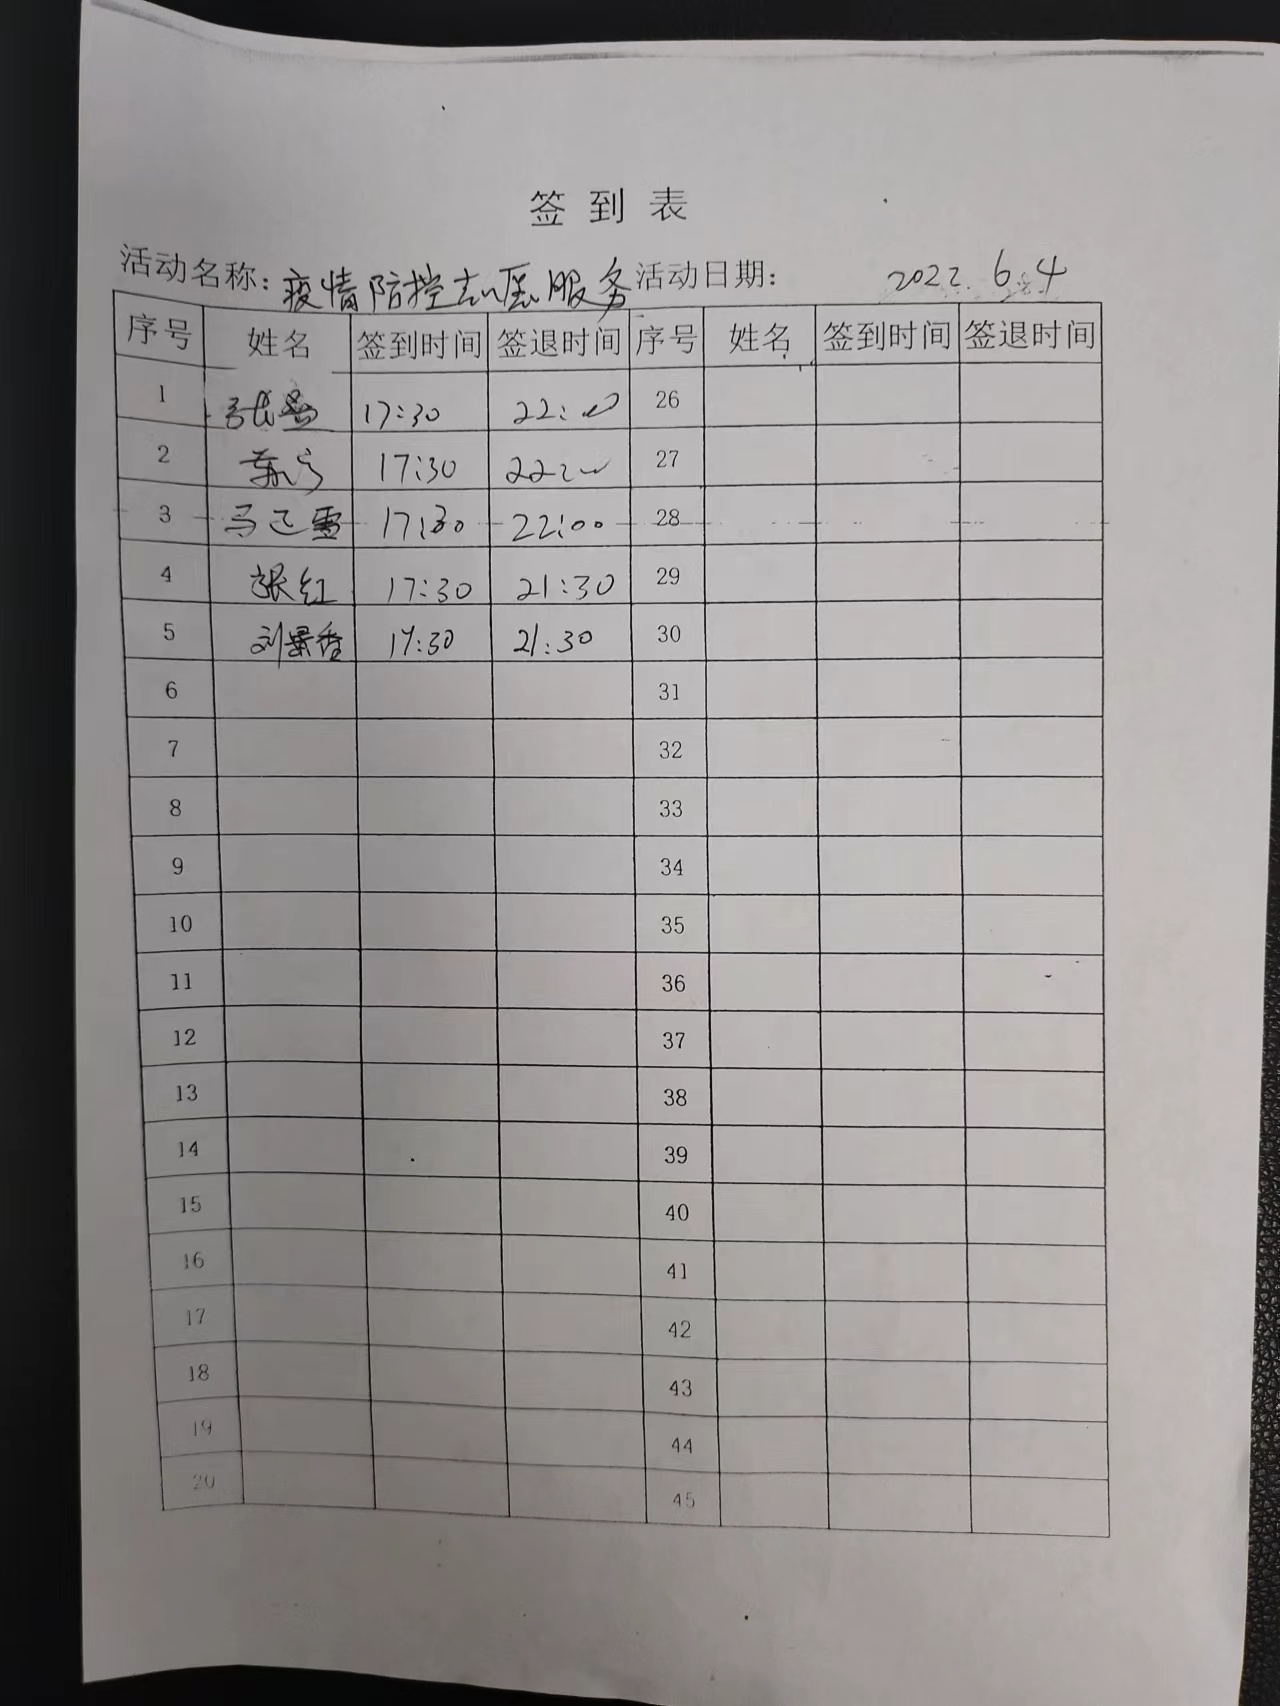 签到表
活动名称：疫情防控志愿服务 活动日期： 2022.6.4
序号 姓名 签到时间 签退时间 序号 姓名 签到时间 签退时间
1 17:30 22:00 26
2 17:30 22:00 27
3 马 雪 17:30 22:00 28
4 张红 17:30 21:30 29
5 刘景香 17:30 21:30 30
6 31
7 32
8 33
9 34
10 35
11 36
12 37
13 38
14 39
15 40
16 41
17 42
18 43
19 44
20 45